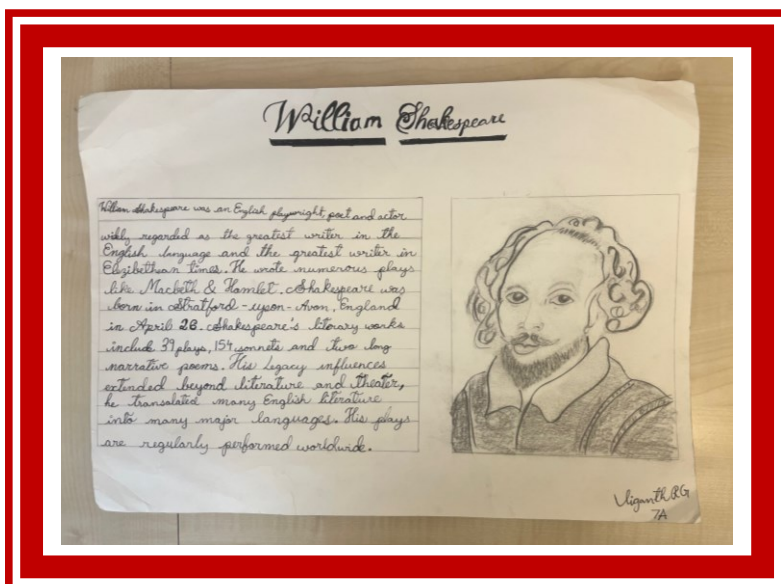 William Shakespeare
William Shakespeare was an English playwright, poet and actor
widly regarded as the greatest writer in the
English language and the greatest writer in
Elizibethan times. He wrote numerous plays
like Macbeth & Hamlet. Shakespeare was
born in Stratford-upon-Avon, England
in April 23. Shakespeare's literary works
include 39 plays, 154 sonnets and two long
narrative poems. His Legacy influences
extended beyond literature and theater,
he transalated many English literature
into many major languages. His plays
are regularly performed worldwide.
RG
7A